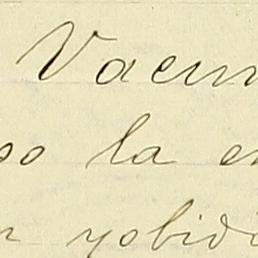 Vacun
so la en
n yobidó